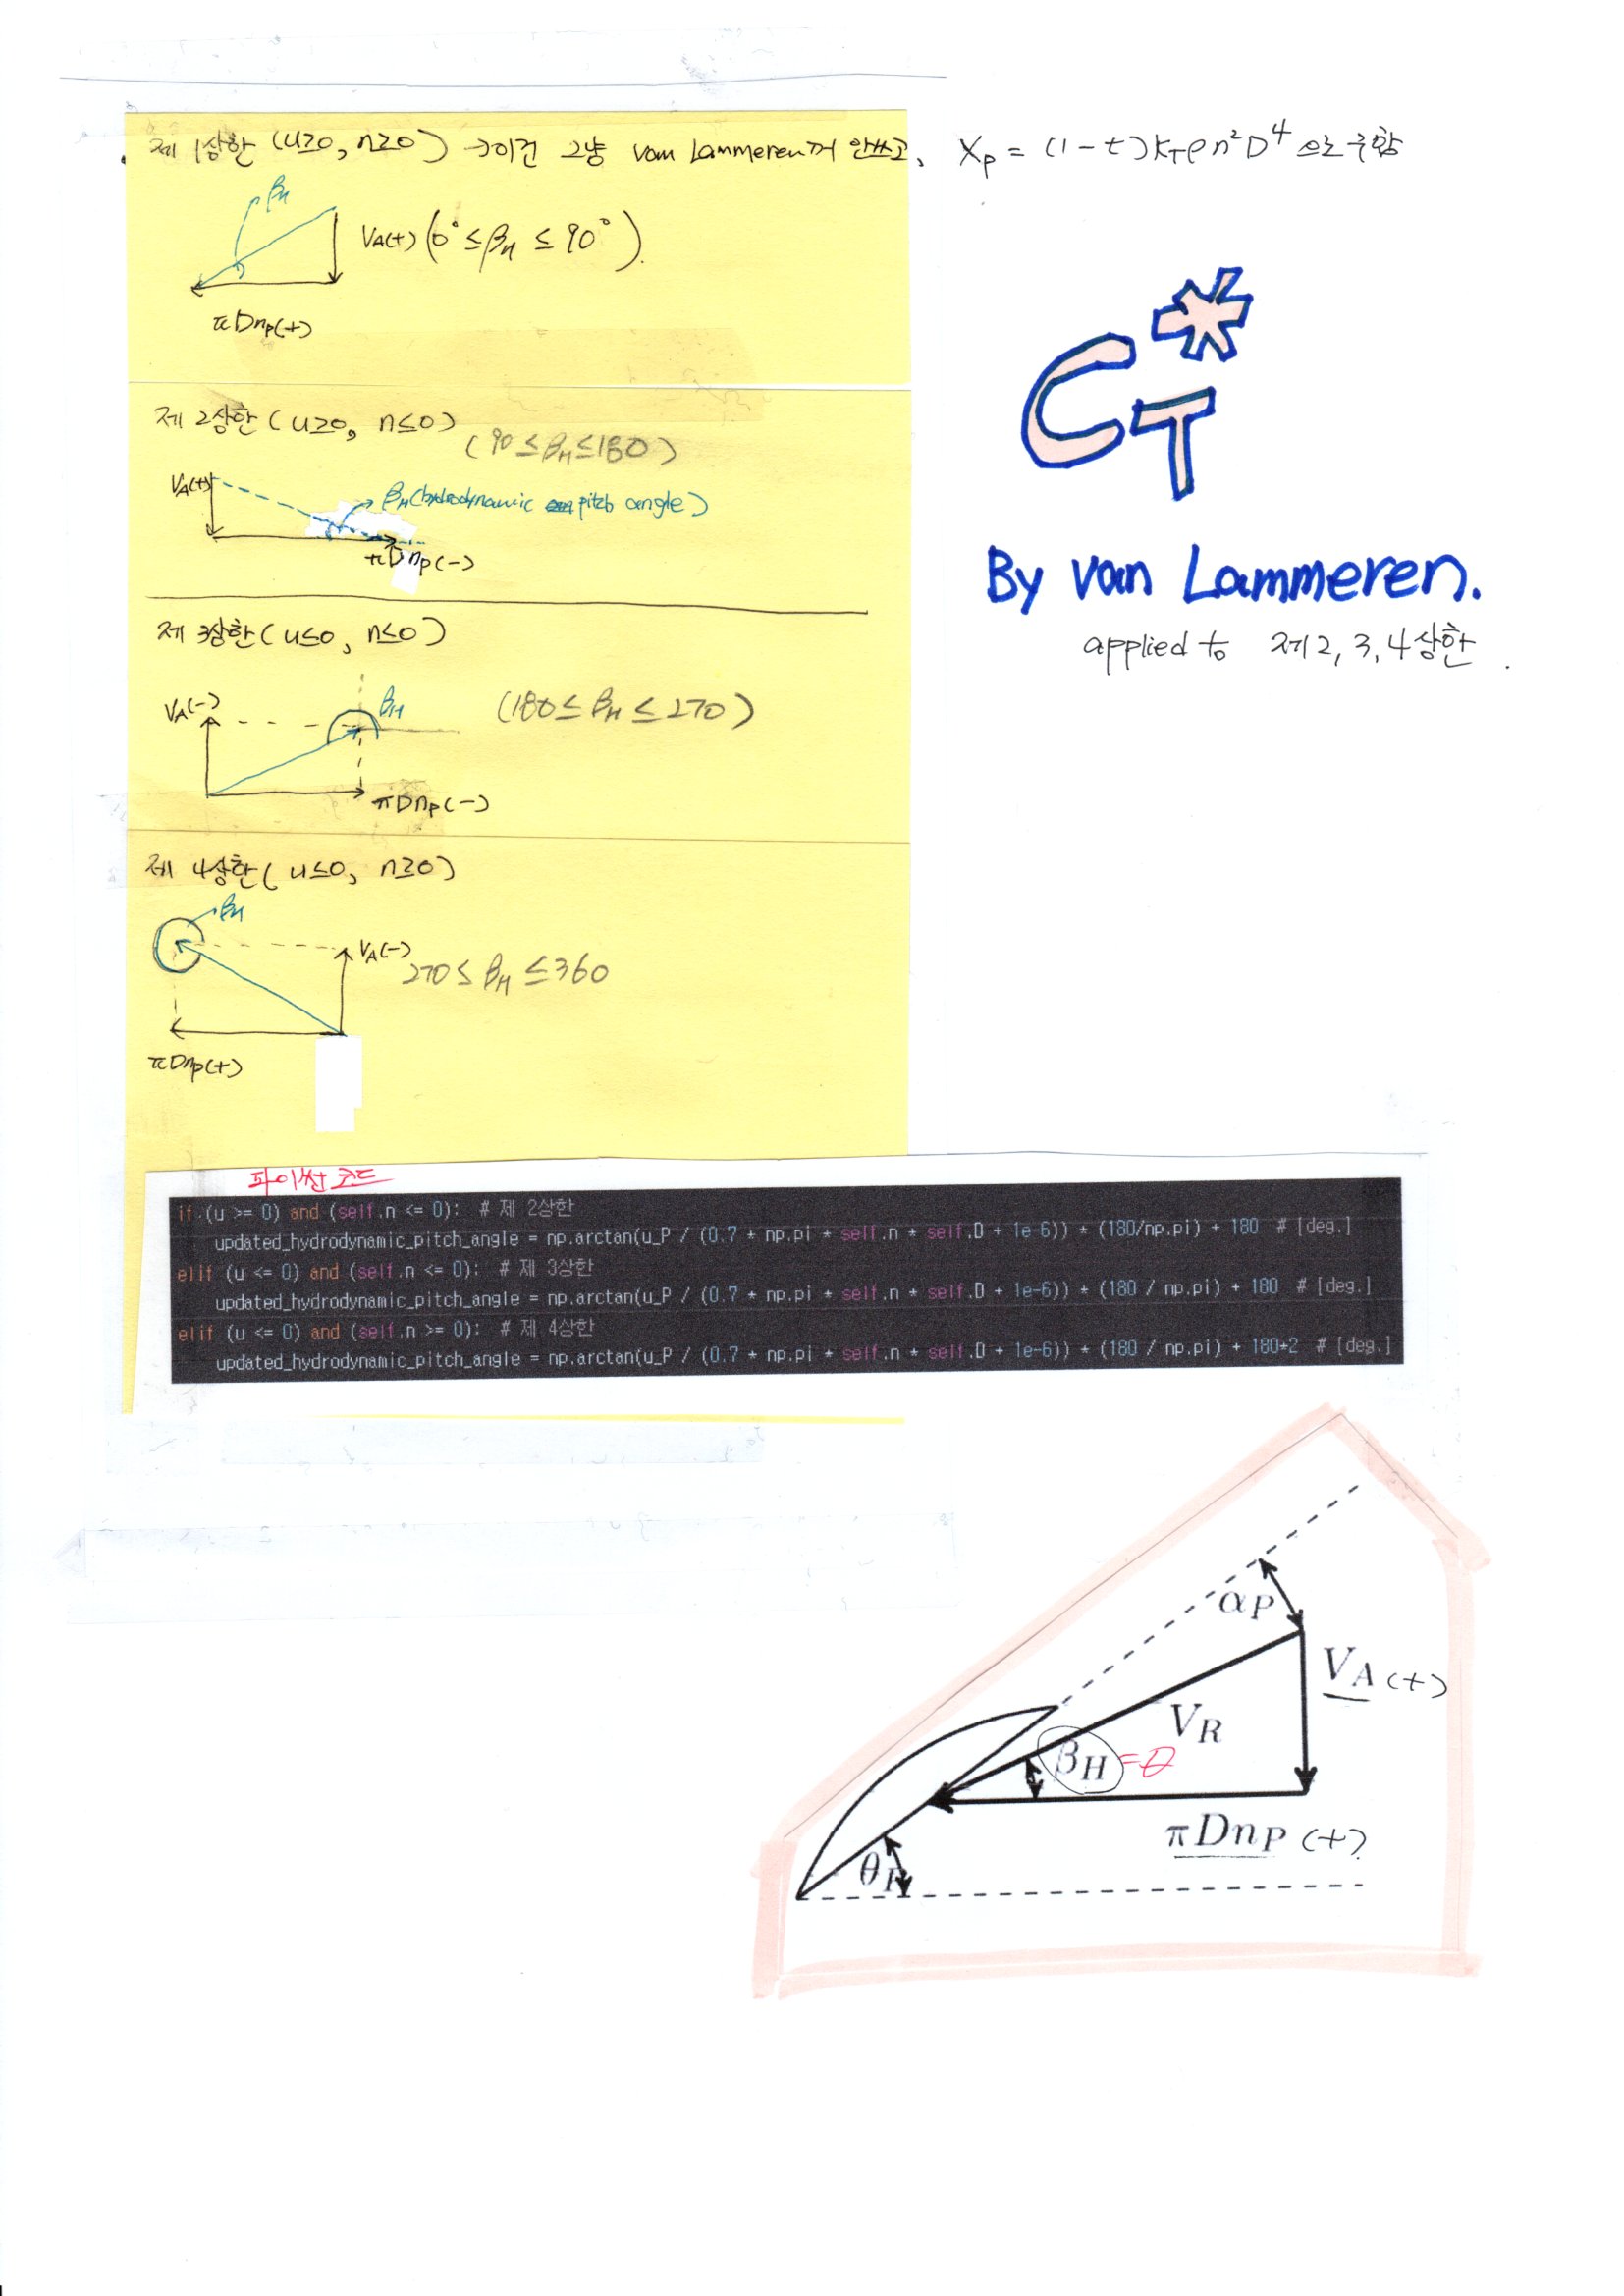 제 1상한 (u≥0, n≥0) → 이건 그냥 van Lammeren꺼 안쓰고, Xp = (1-t)KTρn²D⁴ 으로 구함
βH
VA(+) (0° ≤ βH ≤ 90°).
πDnp(+)
C*T
By van Lammeren.
applied to 제2, 3, 4상한.
제 2상한 (u≥0, n≤0)
(90 ≤ βH ≤ 180)
VA(+)
βH (hydrodynamic pitch angle)
πDnp(-)
제 3상한 (u≤0, n≤0)
VA(-)
βH
(180 ≤ βH ≤ 270)
πDnp(-)
제 4상한 (u≤0, n≥0)
βH
VA(-)
270 ≤ βH ≤ 360
πDnp(+)
파이썬 코드
if (u >= 0) and (self.n <= 0): # 제 2상한
updated_hydrodynamic_pitch_angle = np.arctan(u_P / (0.7 * np.pi * self.n * self.D + 1e-6)) * (180/np.pi) + 180 # [deg.]
elif (u <= 0) and (self.n <= 0): # 제 3상한
updated_hydrodynamic_pitch_angle = np.arctan(u_P / (0.7 * np.pi * self.n * self.D + 1e-6)) * (180 / np.pi) + 180 # [deg.]
elif (u <= 0) and (self.n >= 0): # 제 4상한
updated_hydrodynamic_pitch_angle = np.arctan(u_P / (0.7 * np.pi * self.n * self.D + 1e-6)) * (180 / np.pi) + 180*2 # [deg.]
αP
VA (+)
VR
βH = θ
πDnP (+)
θP